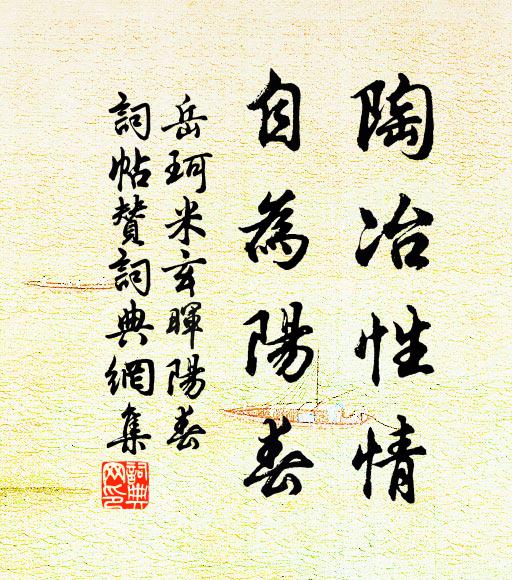 陶冶性情
自為陽春
岳珂米玄暉陽春
詞帖贊詞典網集
詞典網印